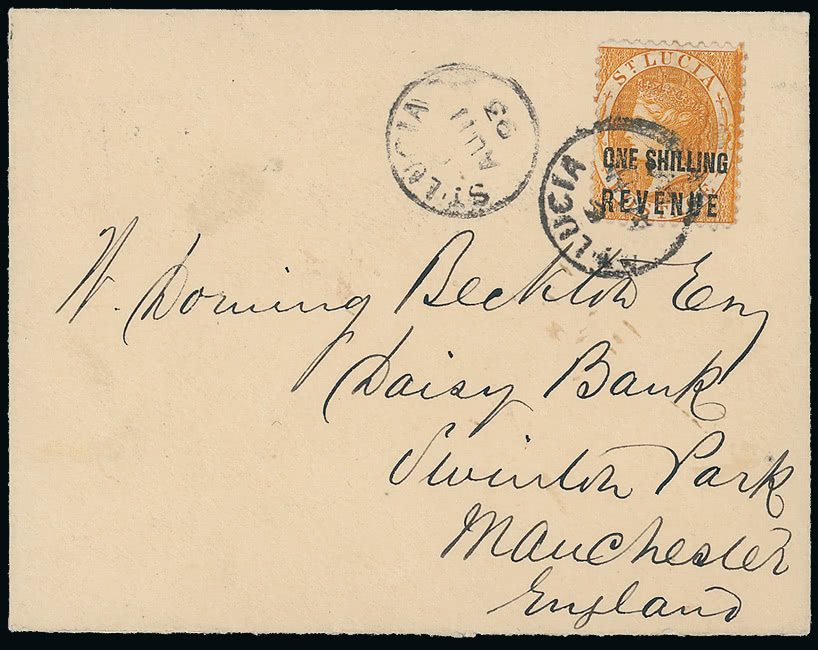 ST. LUCIA
ONE SHILLING
REVENUE
ST. LUCIA
AU 11
93
LUCIA
W. Dorning Beckton Esq
Daisy Bank
Swinton Park
Manchester
England